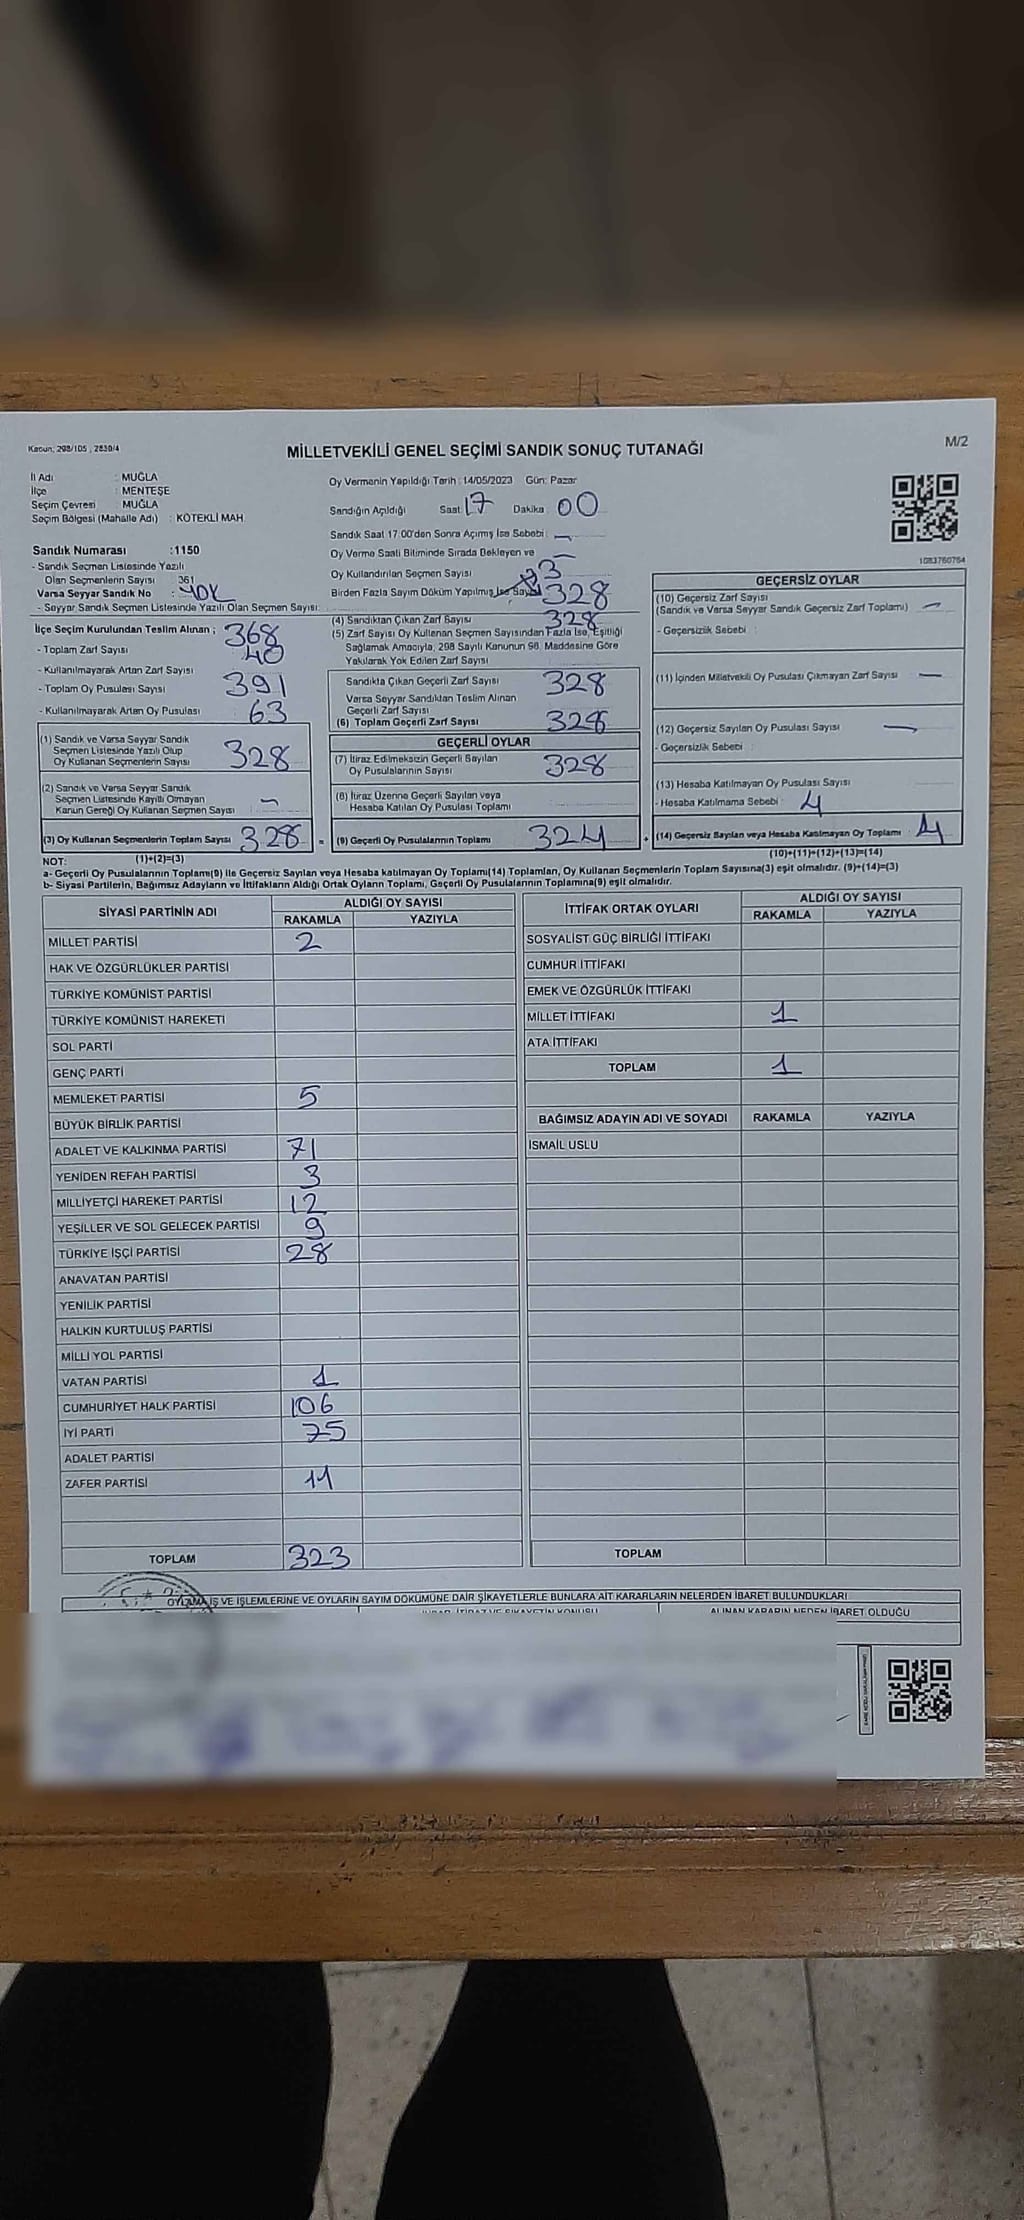 Kanun: 298/105 , 2839/4
MİLLETVEKİLİ GENEL SEÇİMİ SANDIK SONUÇ TUTANAĞI
M/2
İl Adı : MUĞLA
İlçe : MENTEŞE
Seçim Çevresi : MUĞLA
Seçim Bölgesi (Mahalle Adı) : KÖTEKLİ MAH.
Oy Vermenin Yapıldığı Tarih : 14/05/2023 Gün: Pazar
Sandığın Açıldığı Saat: 17 Dakika: 00
Sandık Saat 17:00'den Sonra Açımış İse Sebebi : —
Oy Verme Saati Bitiminde Sırada Bekleyen ve
Oy Kullandırılan Seçmen Sayısı —
Birden Fazla Sayım Döküm Yapılmış İse
Sandık Numarası :1150
- Sandık Seçmen Listesinde Yazılı
Olan Seçmenlerin Sayısı : 361
Varsa Seyyar Sandık No : YOK
- Seyyar Sandık Seçmen Listesinde Yazılı Olan Seçmen Sayısı:
İlçe Seçim Kurulundan Teslim Alınan ;
- Toplam Zarf Sayısı 368
- Kullanılmayarak Artan Zarf Sayısı 40
- Toplam Oy Pusulası Sayısı 391
- Kullanılmayarak Artan Oy Pusulası 63
(1) Sandık ve Varsa Seyyar Sandık
Seçmen Listesinde Yazılı Olup
Oy Kullanan Seçmenlerin Sayısı 328
(2) Sandık ve Varsa Seyyar Sandık
Seçmen Listesinde Kayıtlı Olmayan
Kanun Gereği Oy Kullanan Seçmen Sayısı —
(3) Oy Kullanan Seçmenlerin Toplam Sayısı 328
(1)+(2)=(3)
(4) Sandıktan Çıkan Zarf Sayısı 328
(5) Zarf Sayısı Oy Kullanan Seçmen Sayısından Fazla İse, Eşitliği
Sağlamak Amacıyla, 298 Sayılı Kanunun 98. Maddesine Göre
Yakılarak Yok Edilen Zarf Sayısı
Sandıkta Çıkan Geçerli Zarf Sayısı 328
Varsa Seyyar Sandıktan Teslim Alınan
Geçerli Zarf Sayısı
(6) Toplam Geçerli Zarf Sayısı 328
GEÇERLİ OYLAR
(7) İtiraz Edilmeksizin Geçerli Sayılan
Oy Pusulalarının Sayısı 328
(8) İtiraz Üzerine Geçerli Sayılan veya
Hesaba Katılan Oy Pusulası Toplamı
(9) Geçerli Oy Pusulalarının Toplamı 324
1083760764
GEÇERSİZ OYLAR
(10) Geçersiz Zarf Sayısı
(Sandık ve Varsa Seyyar Sandık Geçersiz Zarf Toplamı) —
- Geçersizlik Sebebi :
(11) İçinden Milletvekili Oy Pusulası Çıkmayan Zarf Sayısı —
(12) Geçersiz Sayılan Oy Pusulası Sayısı —
- Geçersizlik Sebebi :
(13) Hesaba Katılmayan Oy Pusulası Sayısı
- Hesaba Katılmama Sebebi : 4
(14) Geçersiz Sayılan veya Hesaba Katılmayan Oy Toplamı 4
(10)+(11)+(12)+(13)=(14)
NOT:
a- Geçerli Oy Pusulalarının Toplamı(9) ile Geçersiz Sayılan veya Hesaba katılmayan Oy Toplamı(14) Toplamları, Oy Kullanan Seçmenlerin Toplam Sayısına(3) eşit olmalıdır. (9)+(14)=(3)
b- Siyasi Partilerin, Bağımsız Adayların ve İttifakların Aldığı Ortak Oyların Toplamı, Geçerli Oy Pusulalarının Toplamına(9) eşit olmalıdır.
SİYASİ PARTİNİN ADI
ALDIĞI OY SAYISI
RAKAMLA YAZIYLA
MİLLET PARTİSİ 2
HAK VE ÖZGÜRLÜKLER PARTİSİ
TÜRKİYE KOMÜNİST PARTİSİ
TÜRKİYE KOMÜNİST HAREKETİ
SOL PARTİ
GENÇ PARTİ
MEMLEKET PARTİSİ 5
BÜYÜK BİRLİK PARTİSİ
ADALET VE KALKINMA PARTİSİ 71
YENİDEN REFAH PARTİSİ 3
MİLLİYETÇİ HAREKET PARTİSİ 12
YEŞİLLER VE SOL GELECEK PARTİSİ 9
TÜRKİYE İŞÇİ PARTİSİ 28
ANAVATAN PARTİSİ
YENİLİK PARTİSİ
HALKIN KURTULUŞ PARTİSİ
MİLLİ YOL PARTİSİ
VATAN PARTİSİ 1
CUMHURİYET HALK PARTİSİ 106
İYİ PARTİ 75
ADALET PARTİSİ
ZAFER PARTİSİ 11
TOPLAM 323
İTTİFAK ORTAK OYLARI
ALDIĞI OY SAYISI
RAKAMLA YAZIYLA
SOSYALİST GÜÇ BİRLİĞİ İTTİFAKI
CUMHUR İTTİFAKI
EMEK VE ÖZGÜRLÜK İTTİFAKI
MİLLET İTTİFAKI 1
ATA İTTİFAKI
TOPLAM 1
BAĞIMSIZ ADAYIN ADI VE SOYADI RAKAMLA YAZIYLA
İSMAİL USLU
TOPLAM
OYLAMA İŞ VE İŞLEMLERİNE VE OYLARIN SAYIM DÖKÜMÜNE DAİR ŞİKAYETLERLE BUNLARA AİT KARARLARIN NELERDEN İBARET BULUNDUKLARI
ALINAN KARARIN NEDEN İBARET OLDUĞU